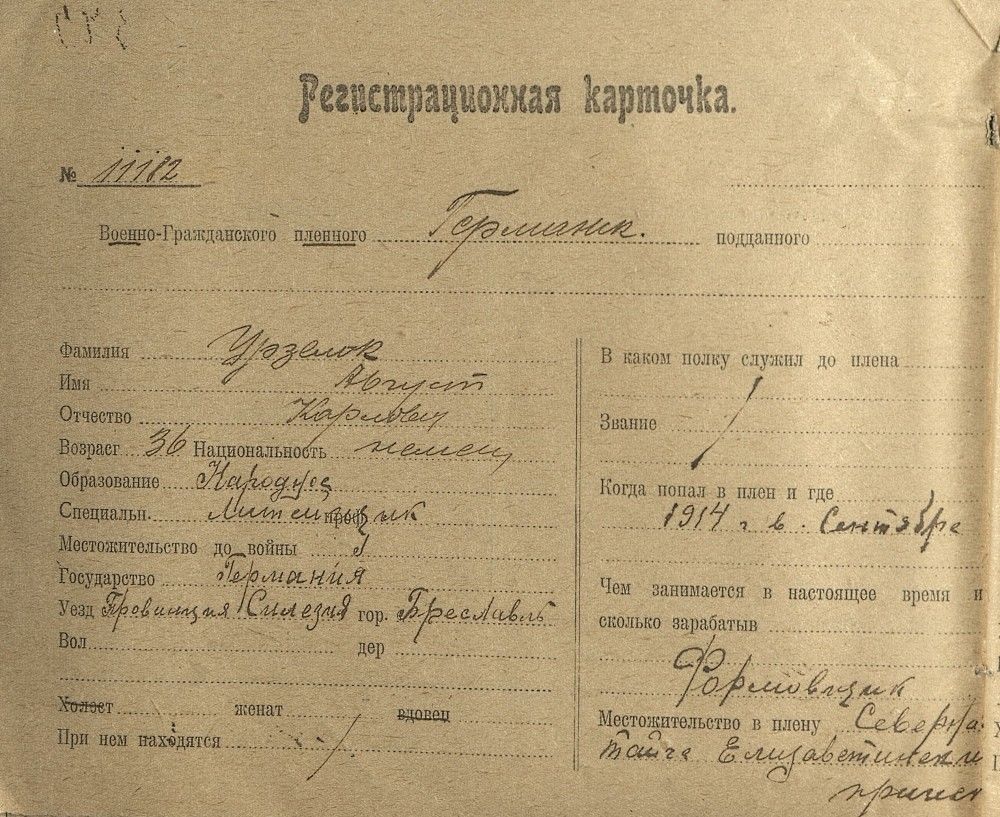 Регистрационная карточка.
№ 11182
Военно-Гражданского пленного Германск. подданного
Фамилия Урзелок
Имя Август
Отчество Карлович
Возраст 36 Национальность немец
Образование Народное
Специальн. проф
Местожительство до войны
Государство Германия
Уезд Провинция Силезия гор. Бреславль
Вол дер
Холост женат вдовец
При нем находятся
В каком полку служил до плена
Звание
Когда попал в плен и где
1914 г в. Сентябре
Чем занимается в настоящее время и
сколько зарабатыв
Формовщик
Местожительство в плену Северна
тайга Елизаветинск
приис